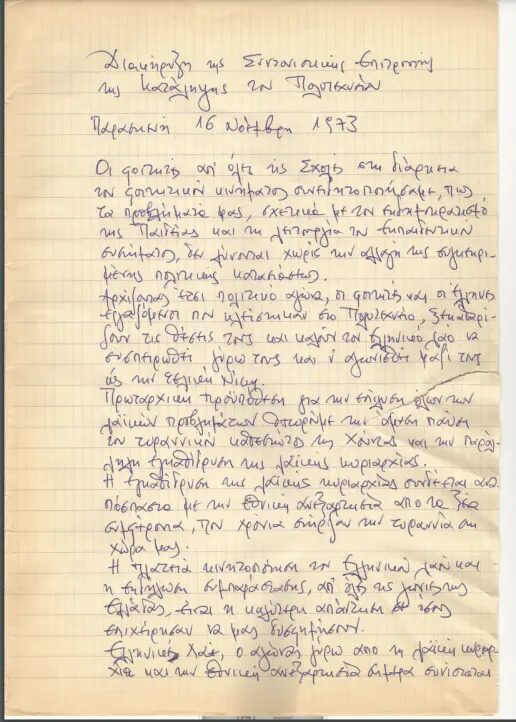 Διακήρυξη της Συντονιστικής Επιτροπής
της Κατάληψης του Πολυτεχνείου
Παρασκευή 16 Νοέμβρη 1973
Οι φοιτητές απ' όλες τις Σχολές στη διάρκεια
του φοιτητικού κινήματος συνειδητοποιήσαμε, πως
τα προβλήματά μας, σχετικά με τον εκδημοκρατισμό
της Παιδείας και τη λειτουργία του εκπαιδευτικού
συστήματος, δεν λύνονται χωρίς την αλλαγή της συγκεκρι-
μένης πολιτικής καταστάσεως.
Αρχίζοντας έτσι πολιτικό αγώνα, οι φοιτητές και οι Έλληνες
εργαζόμενοι που κλείστηκαν στο Πολυτεχνείο, ξεκαθαρί-
ζουν τις θέσεις τους και καλούν τον ελληνικό λαό να
συσπειρωθεί γύρω τους και ν' αγωνισθεί μαζί τους
ως την τελική Νίκη.
Πρωταρχική προϋπόθεση για την επίλυση όλων των
λαϊκών προβλημάτων θεωρούμε την άμεση παύση
του τυραννικού καθεστώτος της Χούντας και την παράλ-
ληλη εγκαθίδρυση της λαϊκής κυριαρχίας.
Η εγκαθίδρυση της λαϊκής κυριαρχίας συνδέεται ανα-
πόσπαστα με την εθνική ανεξαρτησία από τα ξένα
συμφέροντα, που χρόνια στήριζαν την τυραννία στη
χώρα μας.
Η πλατειά κινητοποίηση του Ελληνικού λαού και
η εκδήλωση συμπαράστασης, απ' όλες τις γωνιές της
Ελλάδας, είναι η καλύτερη απάντηση σε όσους
επιχείρησαν να μας δυσφημήσουν.
Ελληνικέ Λαέ, ο αγώνας γύρω από τη λαϊκή κυριαρ-
χία και την εθνική ανεξαρτησία σήμερα συνίσταται